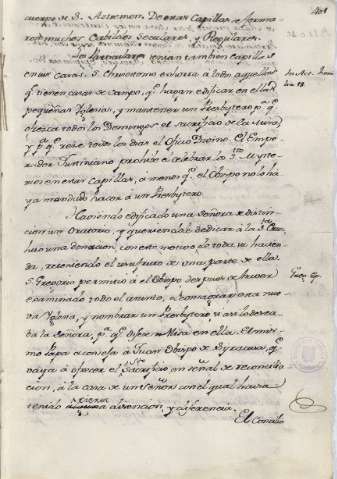 cuerpo de S. Astremon. De estas Capillas se forma-
ron muchos Cabildos Seculares, y Regulares.
Los Particulares tenian tambien Capillas
en sus casas. S. Chrisostomo exhorta à todos aquellos
qᵉ tienen casas de campo, qᵉ hagan edificar en ellas
pequeñas Iglesias, y mantener un Presbytero pᵃ qᵉ
ofrezca todos los Domingos el sacrificio de la Misa,
y pᵃ qᵉ rese todos los dias el Oficio Divino. El Empe-
rador Justiniano prohibe celebrar los Stos Myste-
rios en estas Capillas, a menos qᵉ el Obispo no lo ha-
ya mandado hacer à un Presbytero.
Haviendo edificado una Señora de distin-
cion un Oratorio, y queriendo dedicarlo à la Sta Cruz
hizo una donacion con este motivo de toda su hacien-
da, reteniendo el usufruto de una parte de ella.
S. Gregorio permitió à el Obispo despues de haver
examinado todo el asunto, el consagrar esta nue-
va Iglesia, y nombrar un Presbytero si asi lo desea-
ba la Señora, pᵃ qᵉ dijese Misa en ella. El mis-
mo Papa aconseja à Juan Obispo de Syracusa, qᵉ
vaya à ofrecer el Sacrificio en señal de reconcilia-
cion, à la casa de un Señor con el qual havia
tenido cierta desencion, y diferencia.
El Concilio